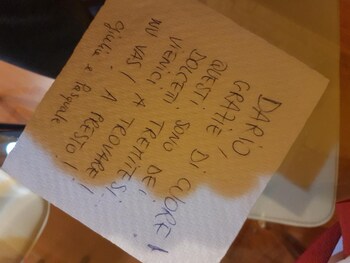 DARIO,
GRAZIE DI CUORE!
QUESTI SONO DEI
DOLCETTI TREMITESI
VIENICI A TROVARE!
NU VAS! A PRESTO!
Giulia e Pasquale